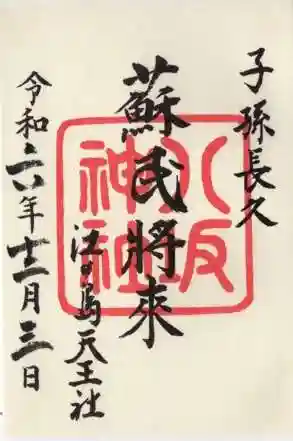 子孫長久
蘇民將來
八坂
神社
江の島天王社
令和六年十二月三日